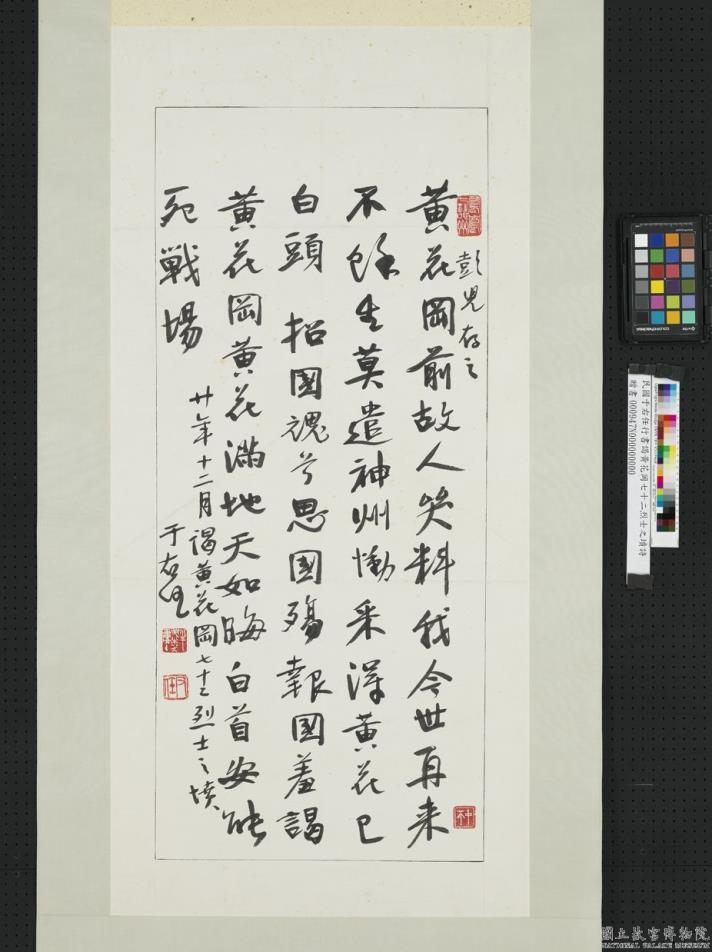 彭兒存之
黃花岡前故人哭料我今世再來
不餘生莫遣神州慟采得黃花已
白頭 招國魂兮思國殤報國羞謁
黃花岡黃花滿地天如晦白首安能
死戰場
廿年十二月謁黃花岡七十二烈士之墳
于右任
右任
民國于右任行書謁黃花岡七十二烈士之墳詩
贈書 000947N000000000
國立故宮博物院
NATIONAL PALACE MUSEUM